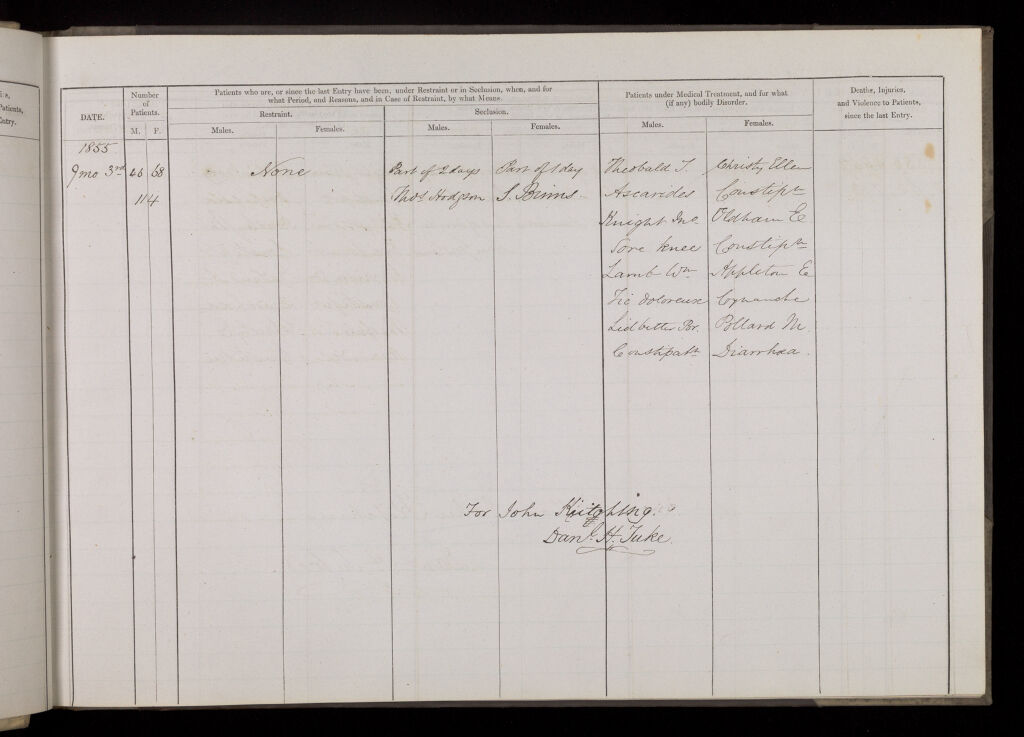 is,
Patients,
Entry.
DATE.
Number
of
Patients.
M. F.
Patients who are, or since the last Entry have been, under Restraint or in Seclusion, when, and for
what Period, and Reasons, and in Case of Restraint, by what Means.
Restraint.
Males. Females.
Seclusion.
Males. Females.
Patients under Medical Treatment, and for what
(if any) bodily Disorder.
Males. Females.
Deaths, Injuries,
and Violence to Patients,
since the last Entry.
1855
9 mo 3rd 46 68 None Part of 2 days Part of 1 day Theobald T. Christy Ellen
114 Thos Hodgson S. Binns. Ascarides Constipn
Knight Jno. Oldham E
Sore knee Constipn
Lamb Wm Appleton E
Tic doloreux Cynanche
Lidbitter Br. Pollard M.
Constipatn Diarrhœa.
For John Kitching
Danl. H. Tuke